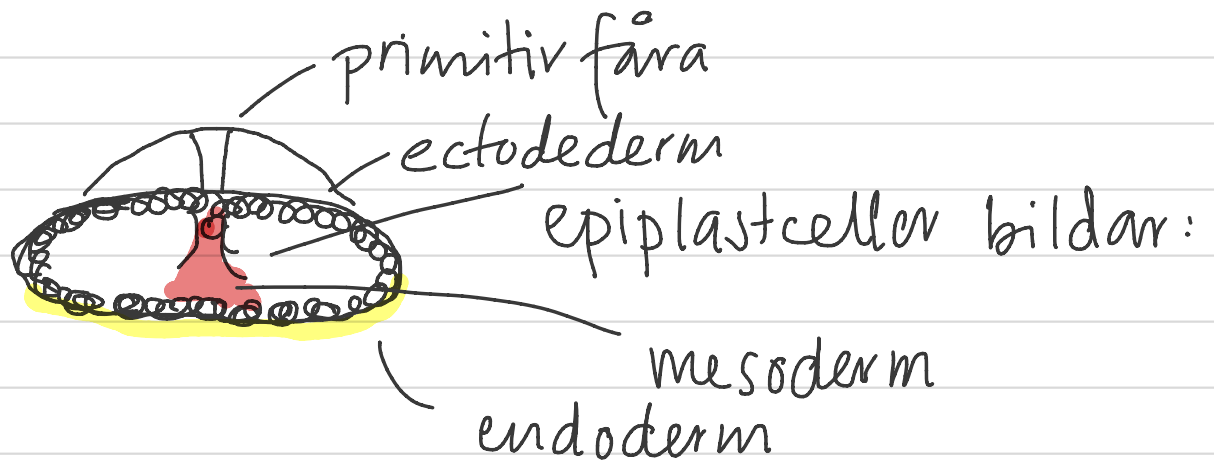 primitiv fåra
ectodederm
epiplastceller bildar:
mesoderm
endoderm